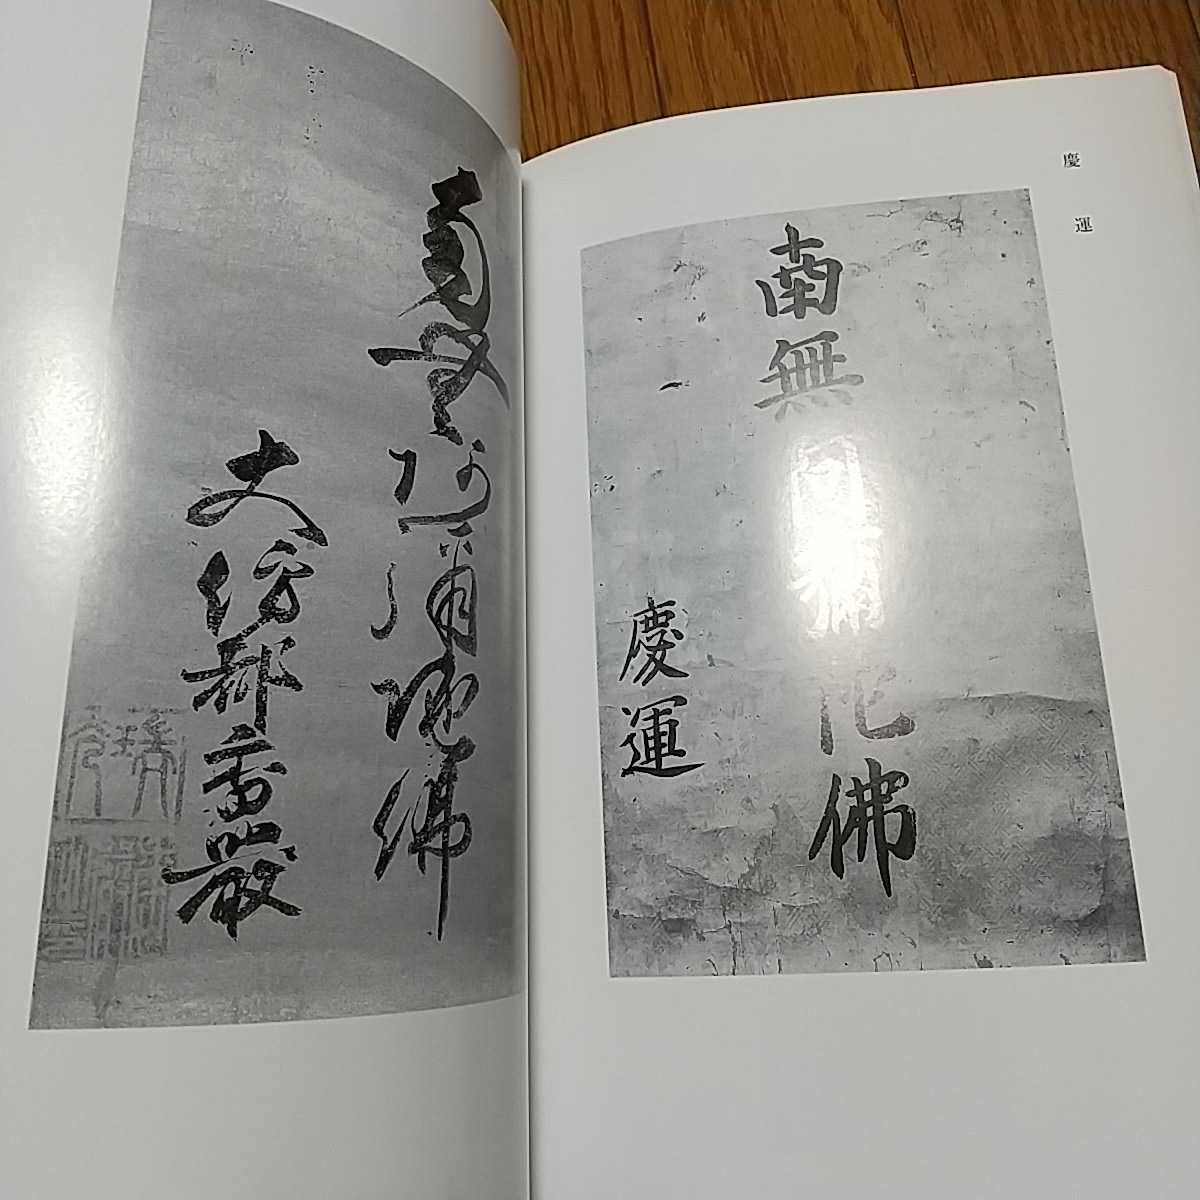 慶運
南無阿彌陀佛
慶運
南無阿彌陀佛
大僧都雲嚴